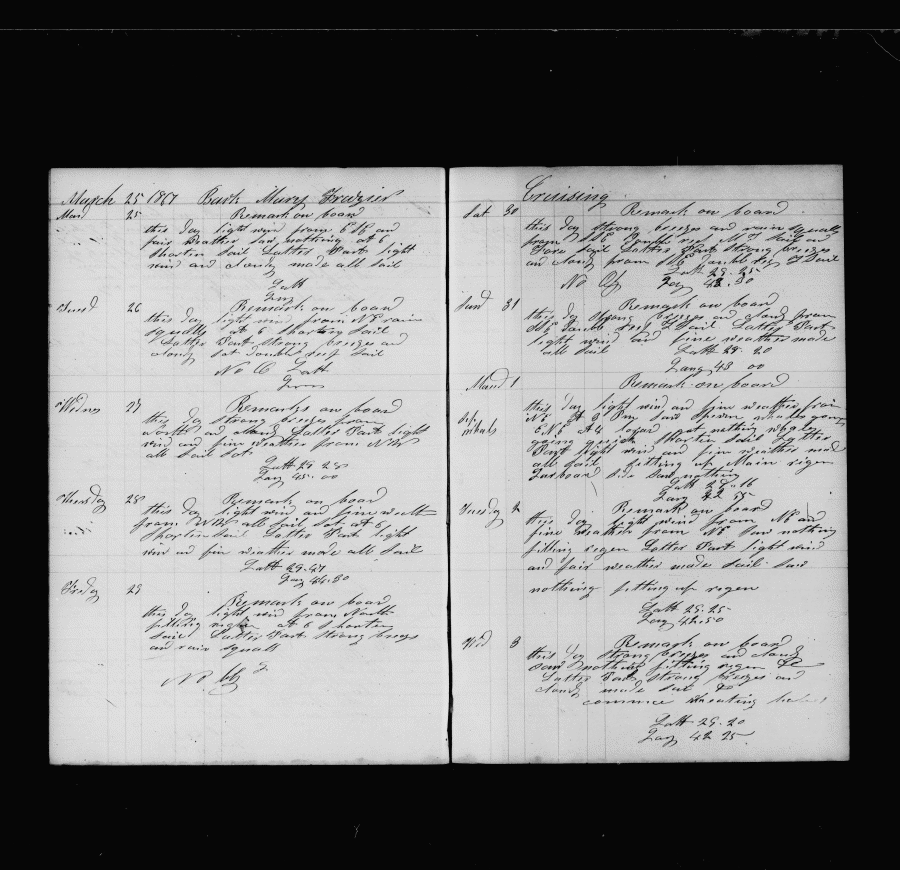 March 25 1867 Bark Mary Frazier
Mond 25 Remark on board
this day light wind from and
fair weather saw nothing at 6
shorten sail Latter Part light
wind and made all sail
Latt
Long
Tuesd 26 Remark on board
this day light wind from NE rain
squalls at 6 shorten sail
Latter Part strong breezes and
cloudy set double reef sail
No Latt
Long
Wednes 27 Remarks on board
this day strong breezes from
north and Latter Part light
wind and fine weather from NW
all sail set
Latt 29 28
Long 45. 00
Thursday 28 Remark on board
this day light wind and fine weath
from all sail set at 6
shorten sail Latter Part light
wind and fine weather made all sail
Latt 29. 47
Long 44. 50
Friday 29
Remark on board
this day light wind from North
fitting rigen at 6 shorten
sail Latter Part strong brezes
and rain squall
No
Cruissing
Sat 30 Remark on board
this day strong brezes and rain squalls
from double reef sail and
Fore sail Latter Part strong brezes
and cloudy from double reef T sail
Latt 29. 25
No Long 43. 30
Sund 31 Remark on board
this day strong brezes and cloudy from
double reef T sail Latter Part
light wind and fine weather made
all sail Latt 29. 20
Long 43 00
Mond 1 Remark on board
this day light wind and fine weather from
NE At 3 Pm saw sperm whales going
ENE At 4 lowered got nothing whales
going quick shorten sail Latter
Part light wind and fine weather made
all sail fitting up Main rigen
Larboard side saw nothing
Latt 28. 16
Long 42 55
Tuesday 2 Remark on board
this day light wind from NE and
fine weather from NE saw nothing
fitting rigen Latter Part light wind
and fair weather made sail saw
nothing fitting up rigen
Latt 29. 25
Long 42. 50
Wed 3 Remark on board
this day strong brezes and cloudy
saw nothing fitting rigen &c
Latter Part strong brezes and
cloudy made sail &c
commince
Latt 29. 20
Long 42 25